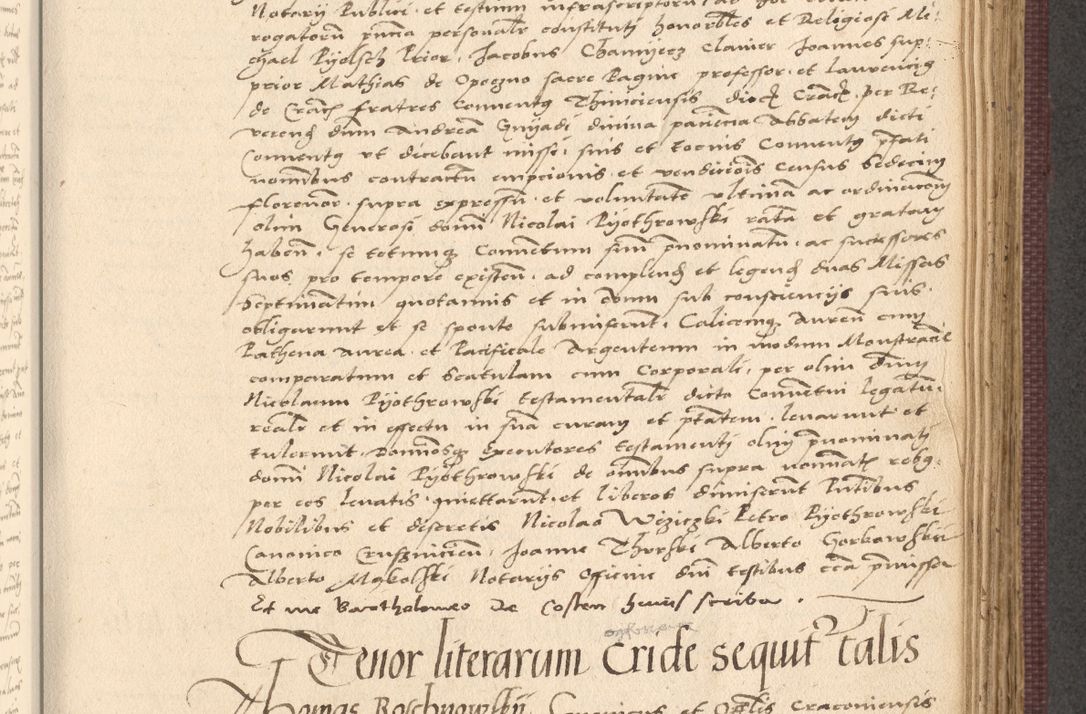 Notarij Publici et testium infrascriptorum ad hoc
rogatorum pñcia personalr constituti honorbles et Religiosi Mi-
chael Pyelsch Prior, Jacobus Chamyecz Clavier Joannes sup-
prior Mathias de Opoczno sacre Pagine professor et Laurencius
de Cracoĩ fratres Conventus Thiniciensis dioc Cracoĩ per Re-
verend dñm Andream Gnyadi divina paciencia Abbatem dicti
Conventus ut dicebant missi, suis et tocius Conventus pfati
nominibus contractum empcionis et vendicois census Sedecim
florenor supra expressum et voluntatem ultimam ac ordinacom
olim Generosi domĩ Nicolai Pyothrowski ratam et gratam
haben, se totumq Conventum suum pnominatum ac successores
suos pro tempore existen, ad complend et legend duas Missas
Septimatim quotannis et in evum sub conscienciis suis
obligarunt et se sponte submiserunt, Calicemq Aureum cum
Pathena aurea et Pacificale Argenteum in modum Monstrancie
comparatum et Scatulam cum Corporali, per olim dñm
Nicolaum Pyothrowski testamentalr dicto Conventui legatum
realr et in effectu in suam curam et ptatem levarunt et
tulerunt, Dominosq Executores testamenti olim pnominati
domĩ Nicolai Pyothrowski de omnibus supra nominatis rebq
per eos levatis quiettarunt et liberos dimiserunt Pntibus
Nobilibus et discretis Nicolao Wyziczki Petro Pyothrowski
Canonico Crusznicien, Joanne Thurski Alberto Gorkowski
Alberto Makolski Notariis Officine dnĩ testibus cca pmissa
Et me Bartholomeo de Costen huius scriba.
Tenor literarum Cride sequitr talis
Thomas Roschnowski Canonicus et Offlis Cracoviensis